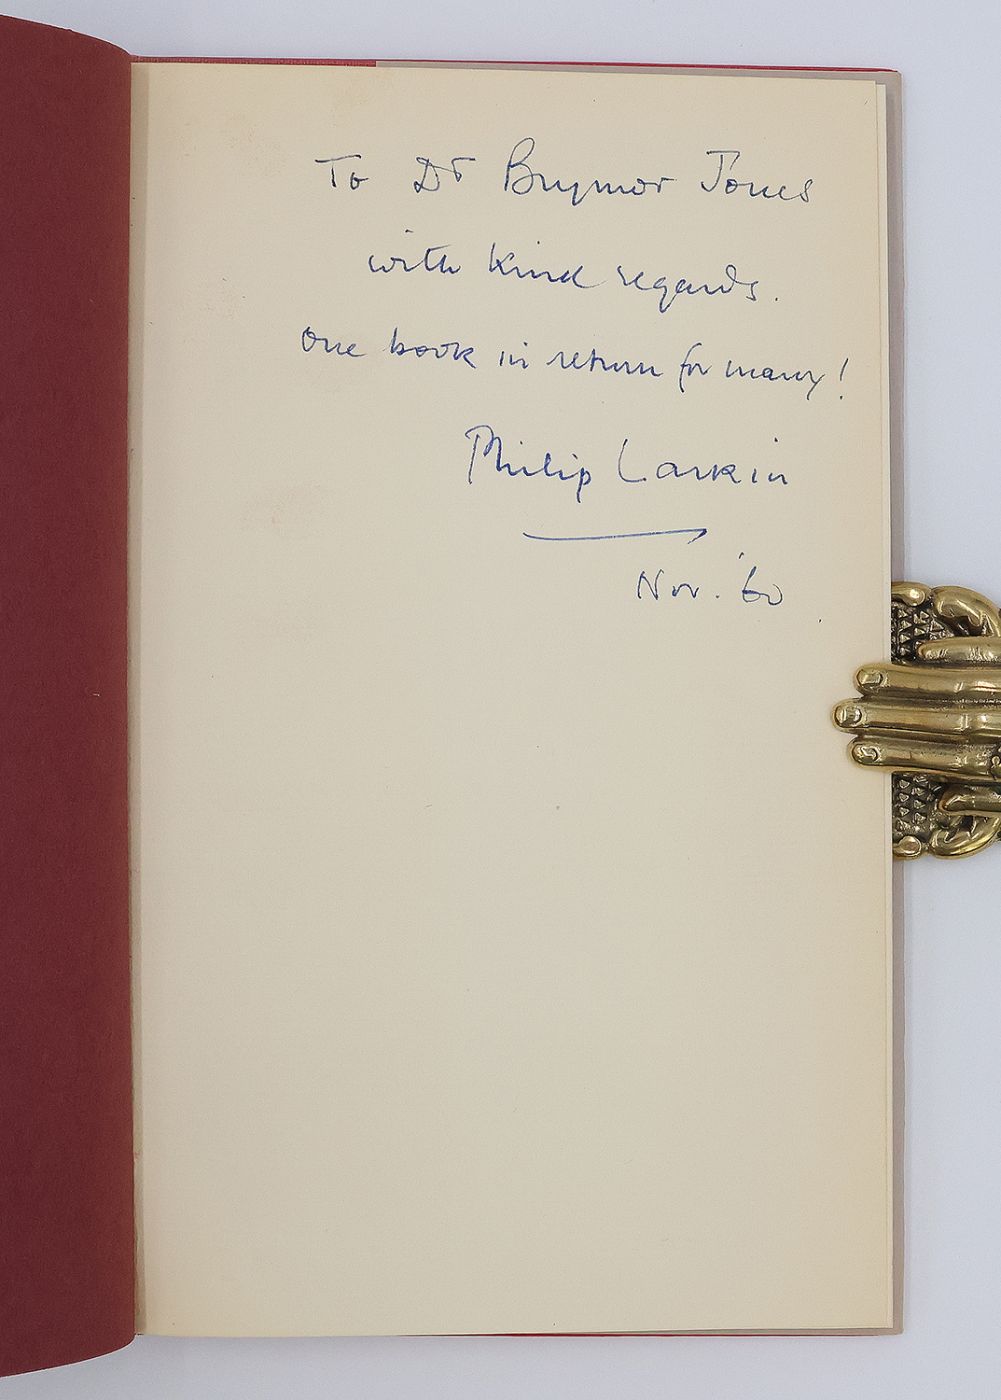 To Dr Brynmor Jones
with kind regards.
One book in return for many!
Philip Larkin
Nov. '60